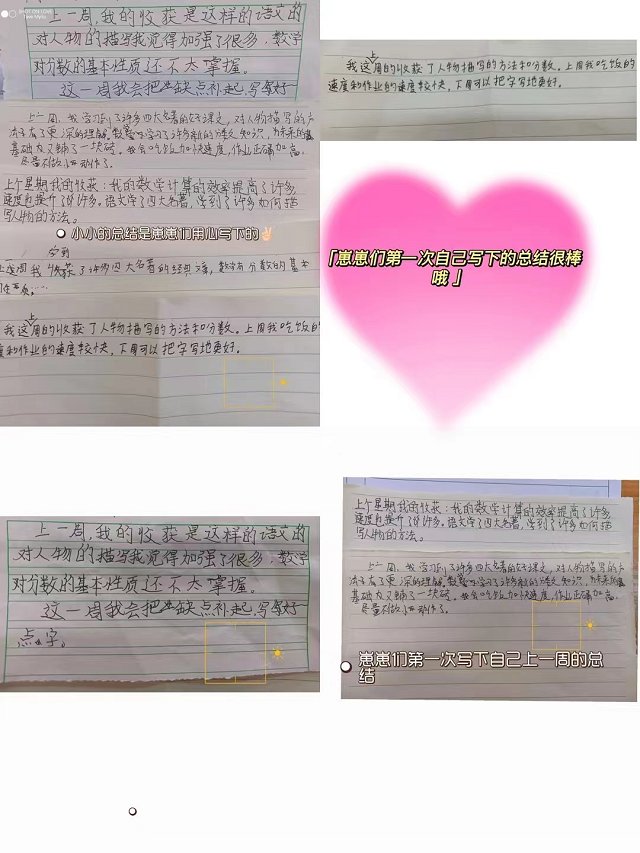 上一周,我的收获是这样的语文的
对人物的描写我觉得加强了很多,数学
对分数的基本性质还不太掌握。
这一周我会把缺点补起,写好
上一周,我学习到了许多四大名著的好课文,对人物描写的方
法有了更深的理解。数学学习了许多新的分数知识,为未来的
基础又铺了一块砖。我会吃饭加快速度,作业正确加高,
尽量不做小动作了。
上个星期我的收获:我的数学计算的效率提高了许多
速度也提升了许多。语文学了四大名著,学到了许多如何描
写人物的方法。
小小的总结是崽崽们用心写下的
学到
上周我收获了许多四大名著的经典文章,数学有分数的基本
性质
上
我这周的收获了人物描写的方法和分数。上周我吃饭的
速度和作业的速度较快,下周可以把字写地更好。
上
我这周的收获了人物描写的方法和分数。上周我吃饭的
速度和作业的速度较快,下周可以把字写地更好。
「崽崽们第一次自己写下的总结很棒
哦」
上一周,我的收获是这样的语文的
对人物的描写我觉得加强了很多,数学
对分数的基本性质还不太掌握。
这一周我会把缺点补起,写好
点字。
上个星期我的收获:我的数学计算的效率提高了许多
速度也提升了许多。语文学了四大名著,学到了许多如何描
写人物的方法。
上一周,我学习到了许多四大名著的好课文,对人物描写的方
法有了更深的理解。数学学习了许多新的分数知识,为未来的
基础又铺了一块砖。我会吃饭加快速度,作业正确加高,
尽量不做小动作了。
崽崽们第一次写下自己上一周的总
结